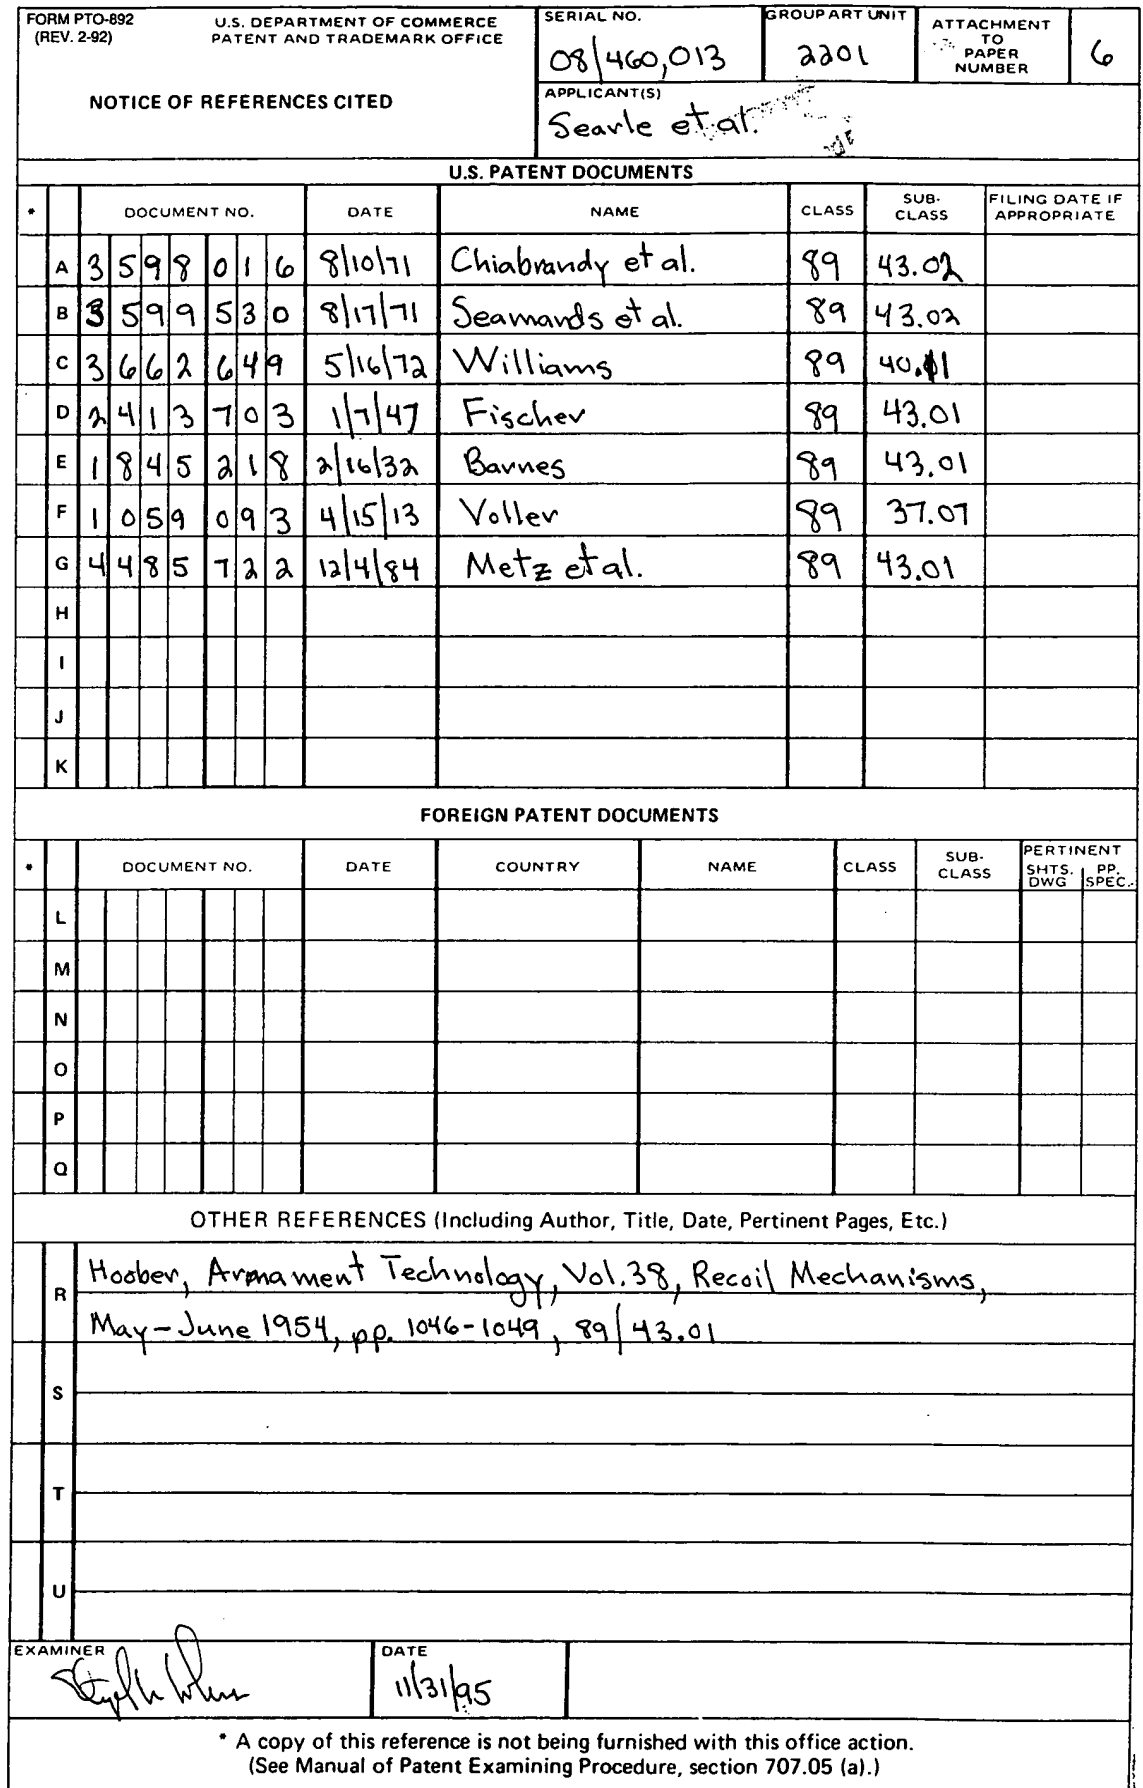 FORM PTO-892 U.S. DEPARTMENT OF COMMERCE
(REV. 2-92) PATENT AND TRADEMARK OFFICE
NOTICE OF REFERENCES CITED
SERIAL NO.
08/460,013
GROUP ART UNIT
2201
ATTACHMENT
TO
PAPER
NUMBER
6
APPLICANT(S)
Searle et al.
U.S. PATENT DOCUMENTS
* DOCUMENT NO. DATE NAME CLASS SUB-CLASS FILING DATE IF APPROPRIATE
A 3 5 9 8 0 1 6 8/10/71 Chiabrandy et al. 89 43.02
B 3 5 9 9 5 3 0 8/17/71 Seamands et al. 89 43.02
C 3 6 6 2 6 4 9 5/16/72 Williams 89 40.11
D 2 4 1 3 7 0 3 1/7/47 Fischer 89 43.01
E 1 8 4 5 2 1 8 2/16/32 Barnes 89 43.01
F 1 0 5 9 0 9 3 4/15/13 Voller 89 37.07
G 4 4 8 5 7 2 2 12/4/84 Metz et al. 89 43.01
H
I
J
K
FOREIGN PATENT DOCUMENTS
* DOCUMENT NO. DATE COUNTRY NAME CLASS SUB-CLASS PERTINENT SHTS. DWG PP. SPEC.
L
M
N
O
P
Q
OTHER REFERENCES (Including Author, Title, Date, Pertinent Pages, Etc.)
R Hoober, Armament Technology, Vol. 38, Recoil Mechanisms,
May-June 1954, pp. 1046-1049, 89/43.01
S
T
U
EXAMINER
DATE
11/31/95
* A copy of this reference is not being furnished with this office action.
(See Manual of Patent Examining Procedure, section 707.05 (a).)